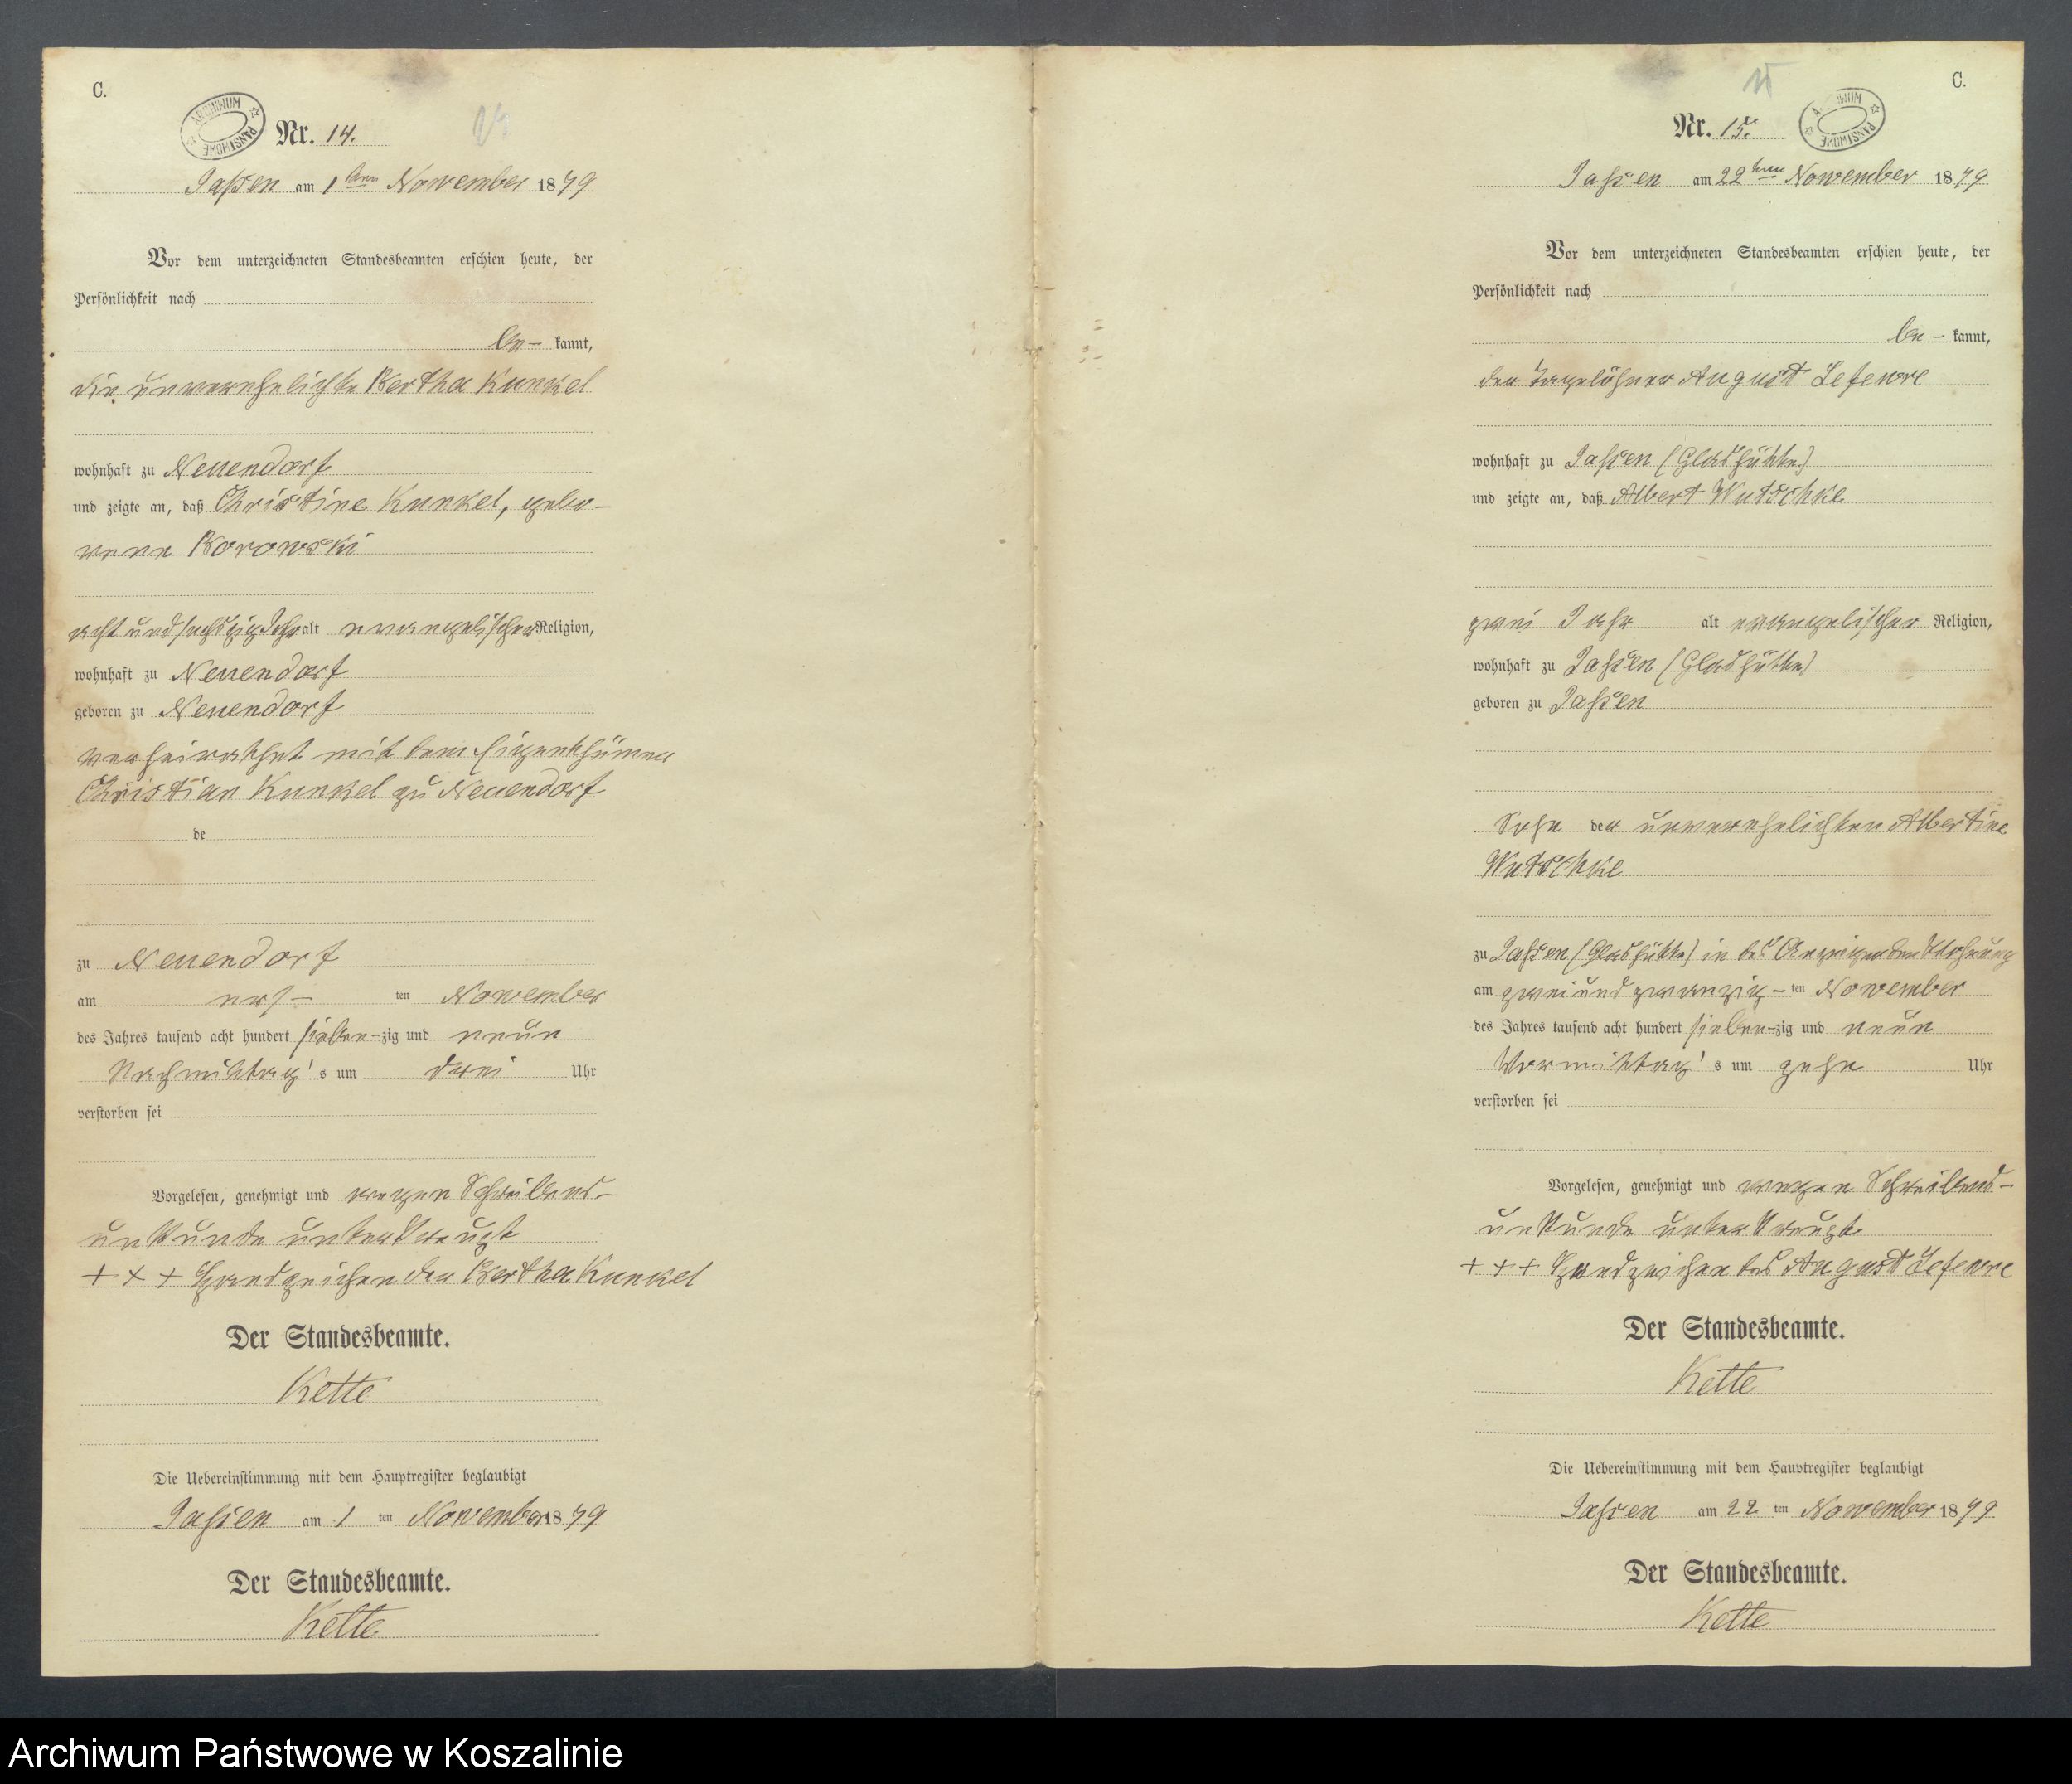 C.
ARCHIWUM PAŃSTWOWE
Nr. 14.
Jassen am 1ten November 1879
Vor dem unterzeichneten Standesbeamten erschien heute, der
Persönlichkeit nach
be- kannt,
die unverehelichte Bertha Kunkel
wohnhaft zu Neuendorf
und zeigte an, daß Christine Kunkel, gebo-
rene Borowski
acht und sechszig Jahr alt evangelischer Religion,
wohnhaft zu Neuendorf
geboren zu Neuendorf
verheirathet mit dem Eigenthümer
Christian Kunkel zu Neuendorf
de
zu Neuendorf
am ers- ten November
des Jahres tausend acht hundert sieben-zig und neun
Nachmittag's um drei Uhr
verstorben sei
Vorgelesen, genehmigt und wegen Schreibens-
unkunde unterkreuzt
+ + + Handzeichen der Bertha Kunkel
Der Standesbeamte.
Kette
Die Uebereinstimmung mit dem Hauptregister beglaubigt
Jassen am 1 ten November 1879
Der Standesbeamte.
Kette
15
C.
ARCHIWUM PAŃSTWOWE
Nr. 15.
Jassen am 22ten November 1879
Vor dem unterzeichneten Standesbeamten erschien heute, der
Persönlichkeit nach
be- kannt,
der Tagelöhner August Lefevre
wohnhaft zu Jassen (Glashütte)
und zeigte an, daß Albert Wutschke
zwei Jahr alt evangelischer Religion,
wohnhaft zu Jassen (Glashütte)
geboren zu Jassen
Sohn der unverehelichten Albertine
Wutschke
zu Jassen (Glashütte) in des Anzeigenden Wohnung
am zwei und zwanzig- ten November
des Jahres tausend acht hundert sieben-zig und neun
Vormittag's um zehn Uhr
verstorben sei
Vorgelesen, genehmigt und wegen Schreibens-
unkunde unterkreuzt
+ + + Handzeichen des August Lefevre
Der Standesbeamte.
Kette
Die Uebereinstimmung mit dem Hauptregister beglaubigt
Jassen am 22 ten November 1879
Der Standesbeamte.
Kette
Archiwum Państwowe w Koszalinie